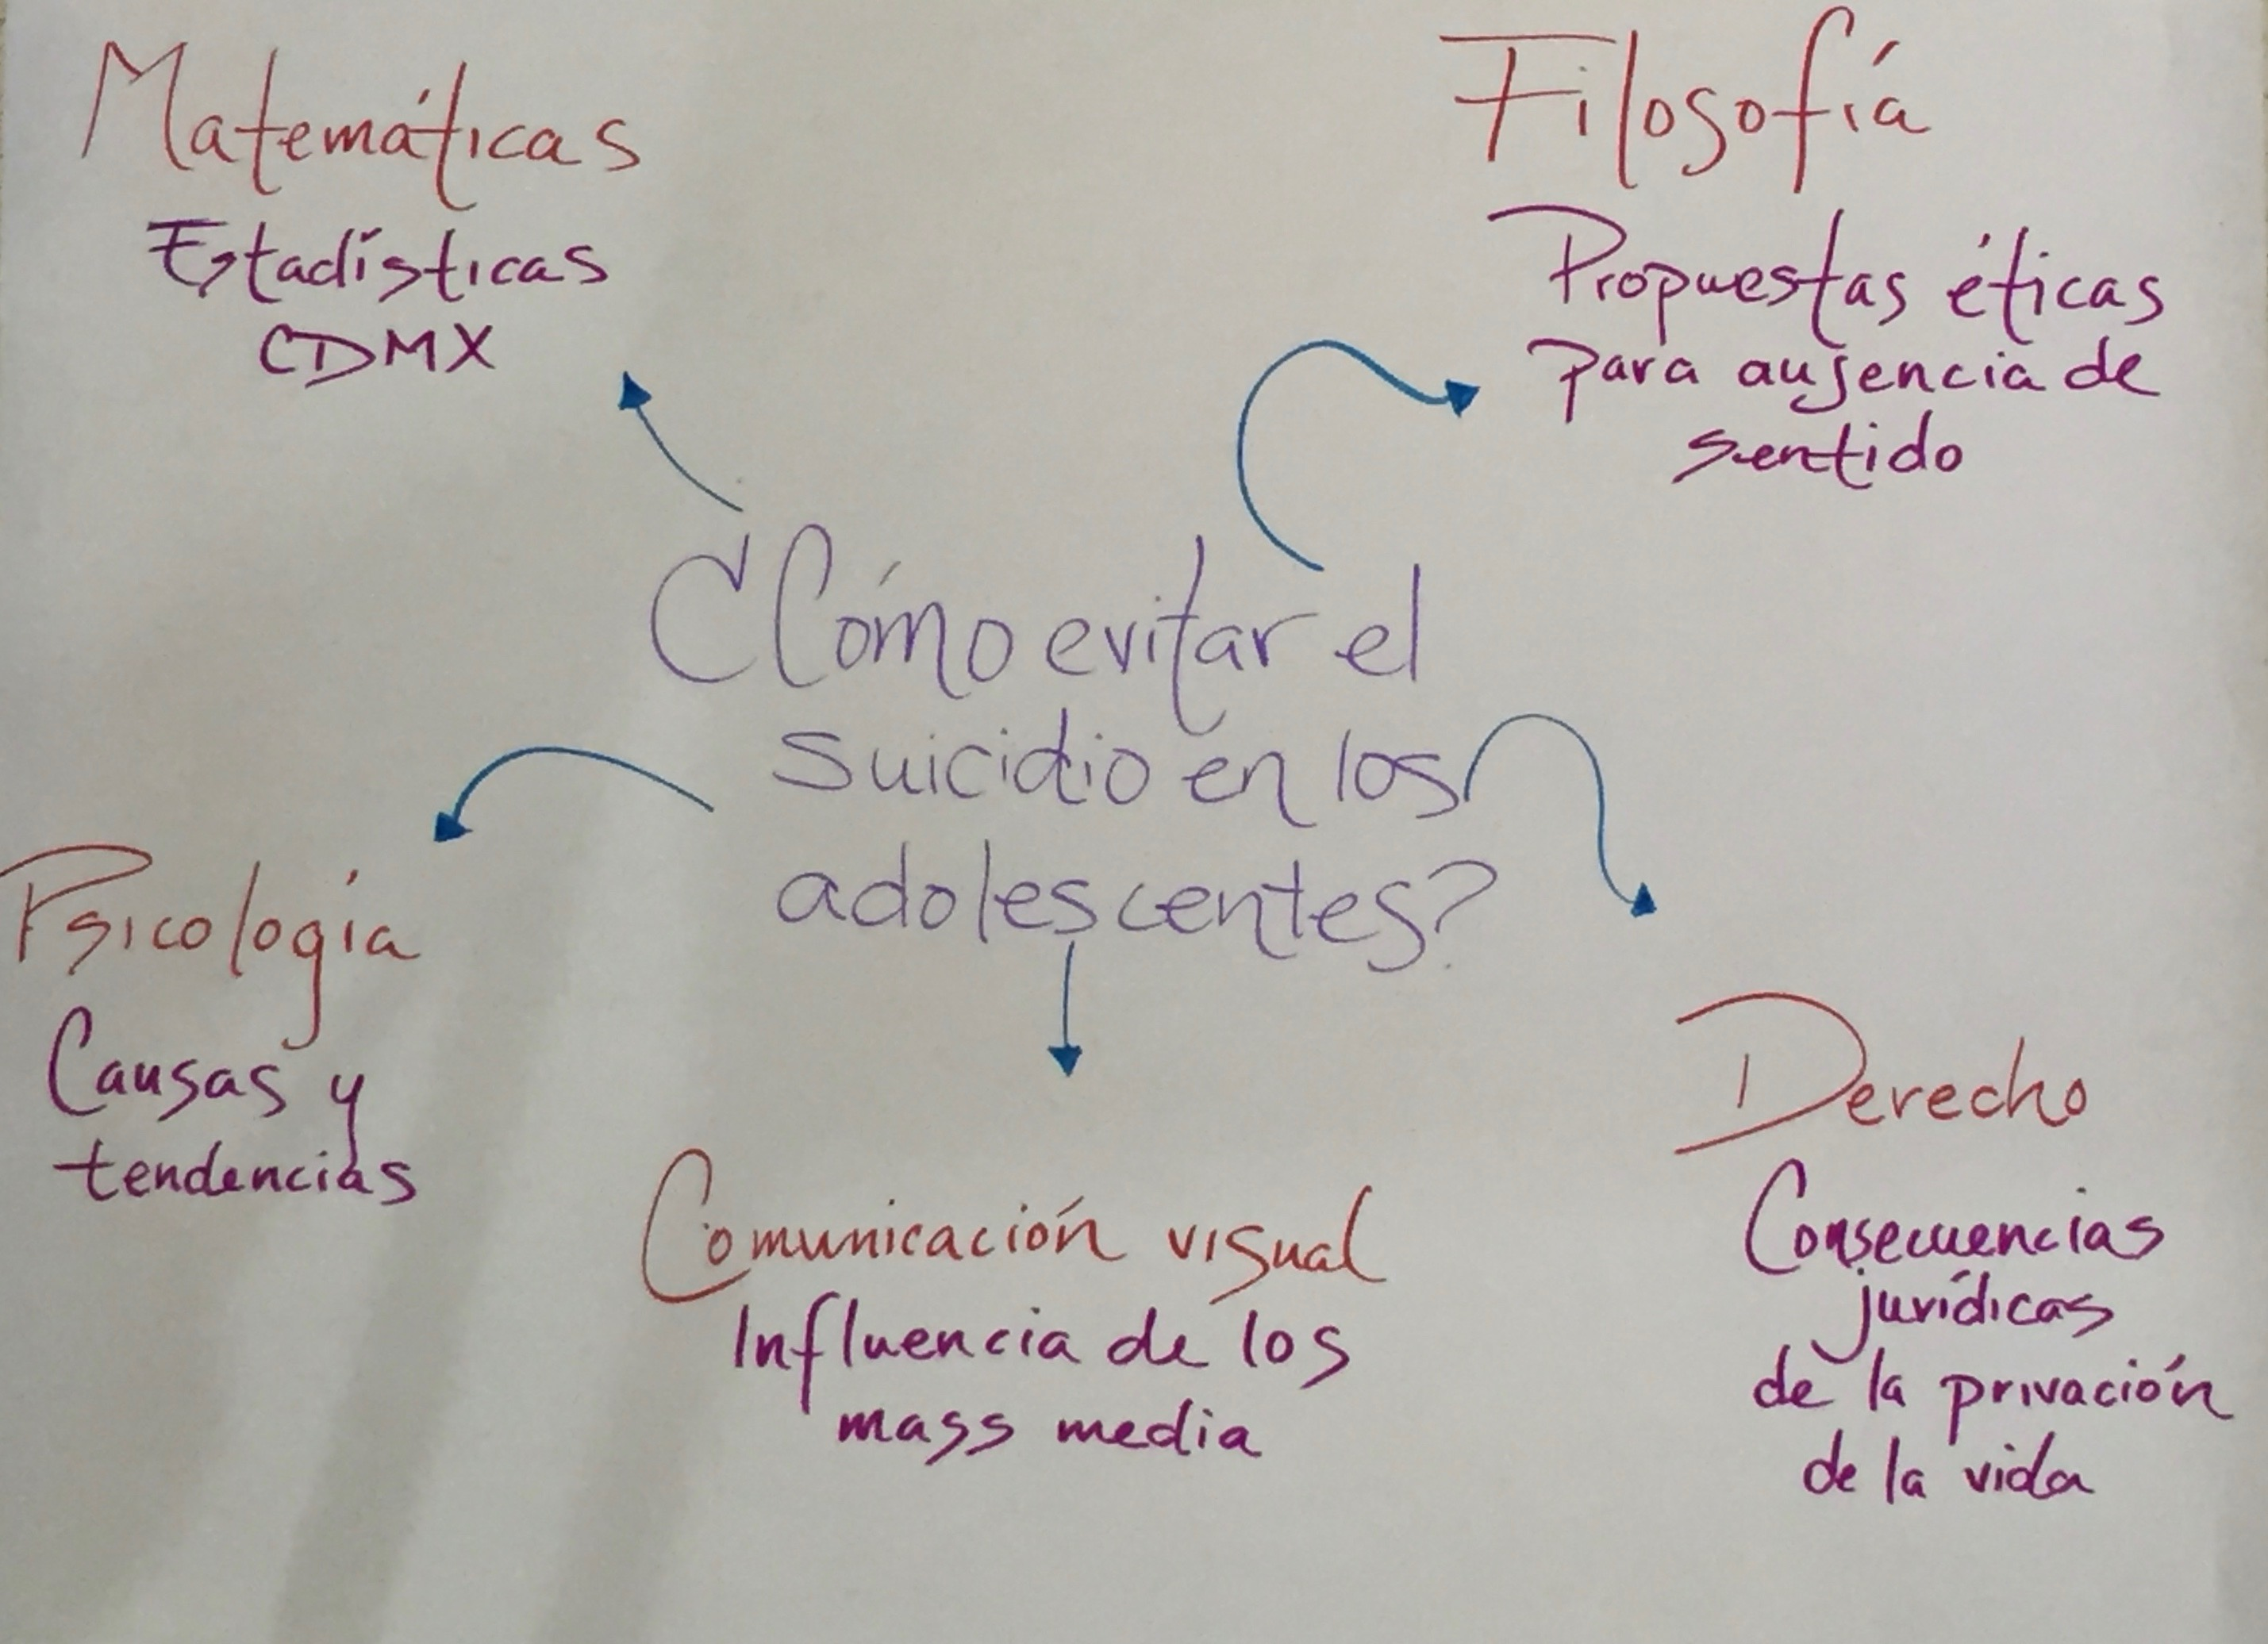 Matemáticas
Estadísticas
CDMX
Filosofía
Propuestas éticas
para ausencia de
sentido
¿Cómo evitar el
suicidio en los
adolescentes?
Psicología
Causas y
tendencias
Comunicación visual
Influencia de los
mass media
Derecho
Consecuencias
jurídicas
de la privación
de la vida